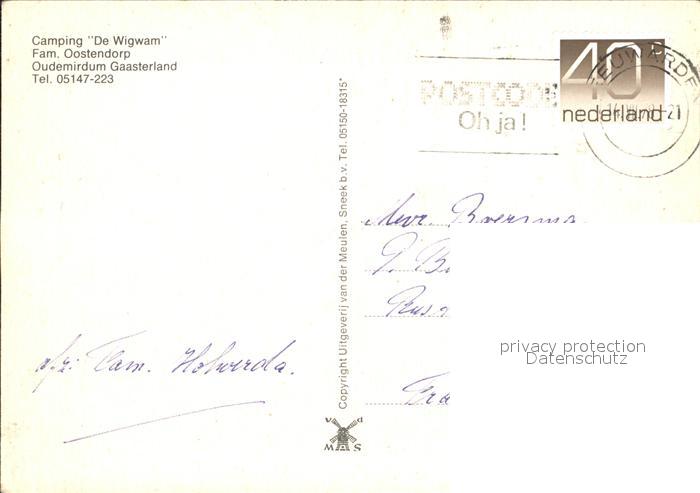 Camping "De Wigwam"
Fam. Oostendorp
Oudemirdum Gaasterland
Tel. 05147-223
40
nederland
POSTCODE
Oh ja!
Copyright Uitgeverij van der Meulen, Sneek b.v. Tel. 05150-18315*
Mevr. Boersma
afz: Fam. Holwerda.
privacy protection
Datenschutz
v d
MAS